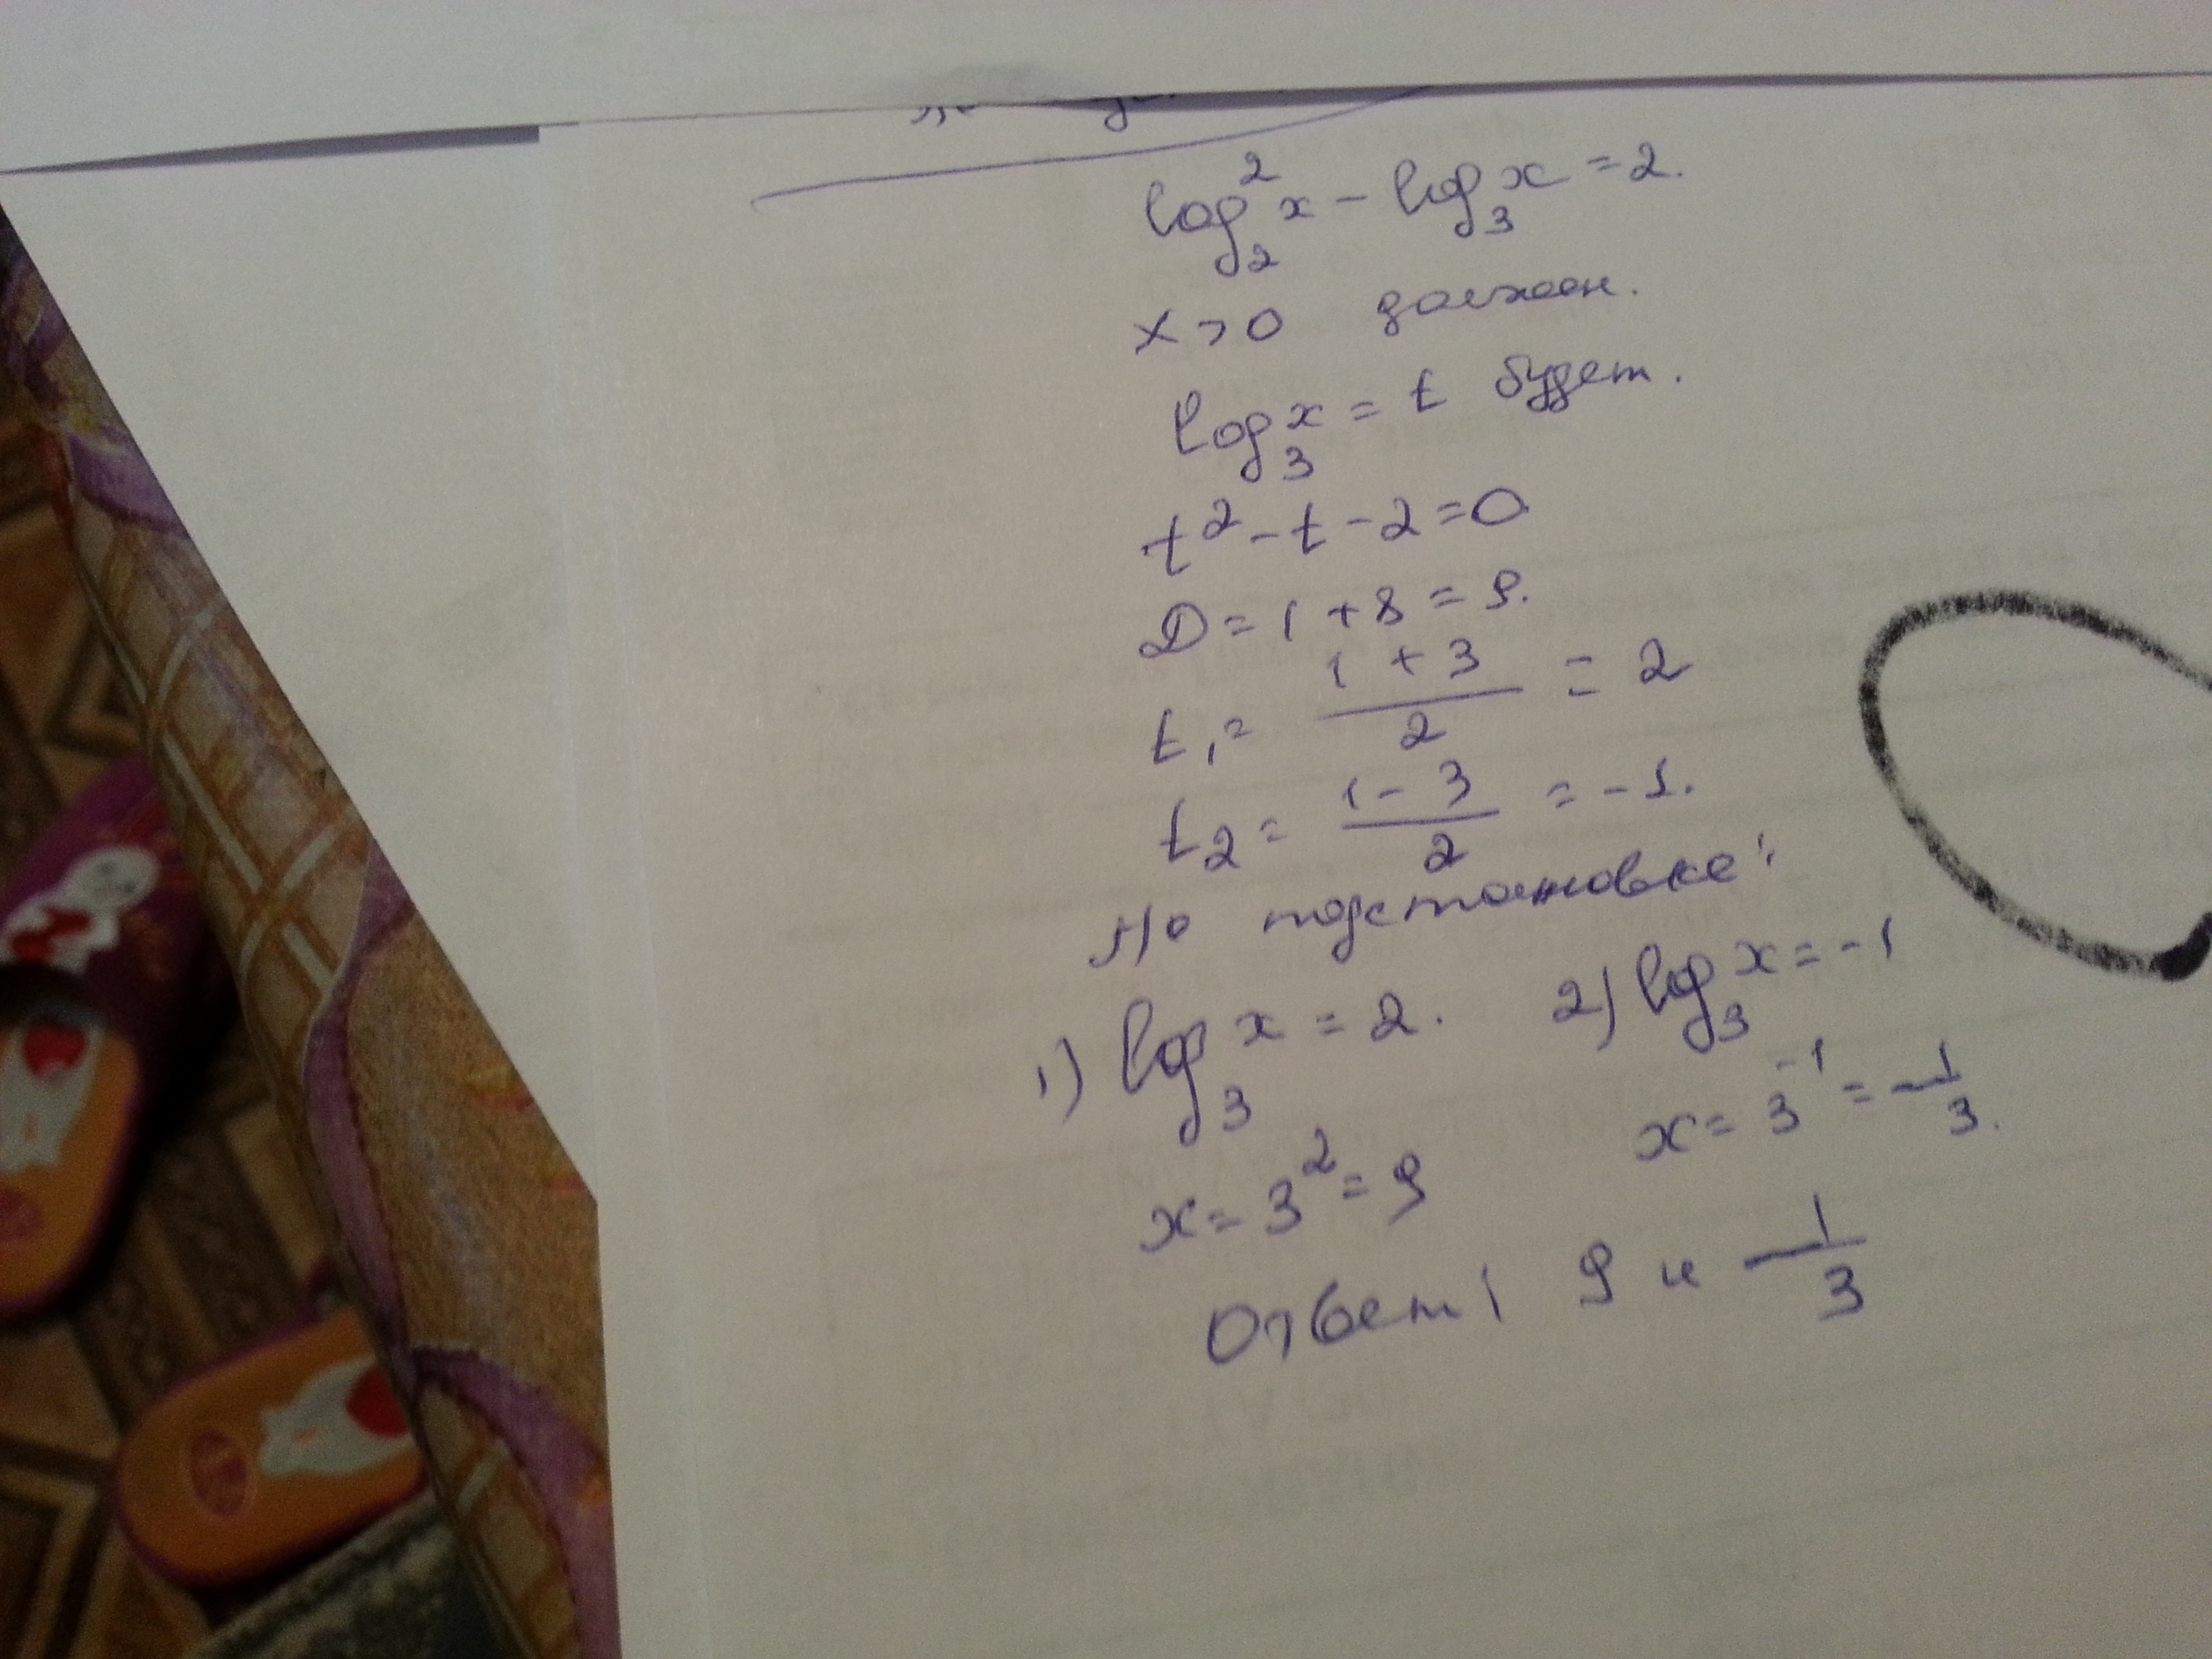 log₂² x - log₃ x = 2.
x > 0 должен.
log₃ x = t будет.
t² - t - 2 = 0
D = 1 + 8 = 9.
t₁ = (1 + 3)/2 = 2
t₂ = (1 - 3)/2 = -1.
По подстановке:
1) log₃ x = 2. 2) log₃ x = -1
x = 3² = 9 x = 3⁻¹ = 1/3.
Ответ: 9 и 1/3